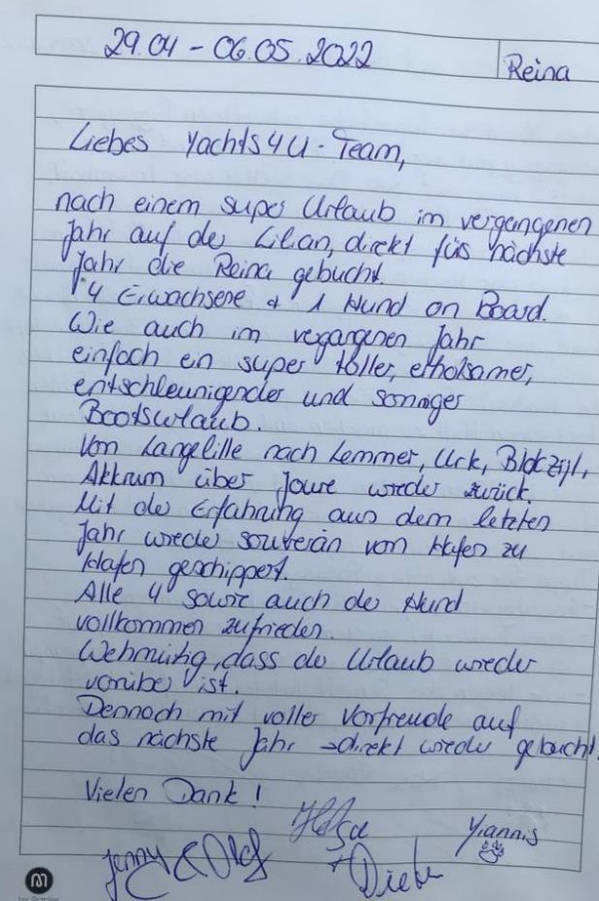 29.04 - 06.05.2022
Reina
Liebes Yachts4U-Team,
nach einem super Urlaub im vergangenen
Jahr auf der Lilian, direkt fürs nächste
Jahr die Reina gebucht.
4 Erwachsene + 1 Hund on Board.
Wie auch im vergangenen Jahr
einfach ein super toller, erholsamer,
entschleunigender und sonniger
Bootsurlaub.
Von Langelille nach Lemmer, Urk, Blokzijl,
Akkrum über Joure wieder zurück.
Mit der Erfahrung aus dem letzten
Jahr wieder souverän von Hafen zu
Hafen geschippert.
Alle 4 sowie auch der Hund
vollkommen zufrieden.
Wehmütig, dass der Urlaub wieder
vorüber ist.
Dennoch mit voller Vorfreude auf
das nächste Jahr → direkt wieder gebucht.
Vielen Dank!
Jenny & Olaf
Helga + Dieter
Yiannis